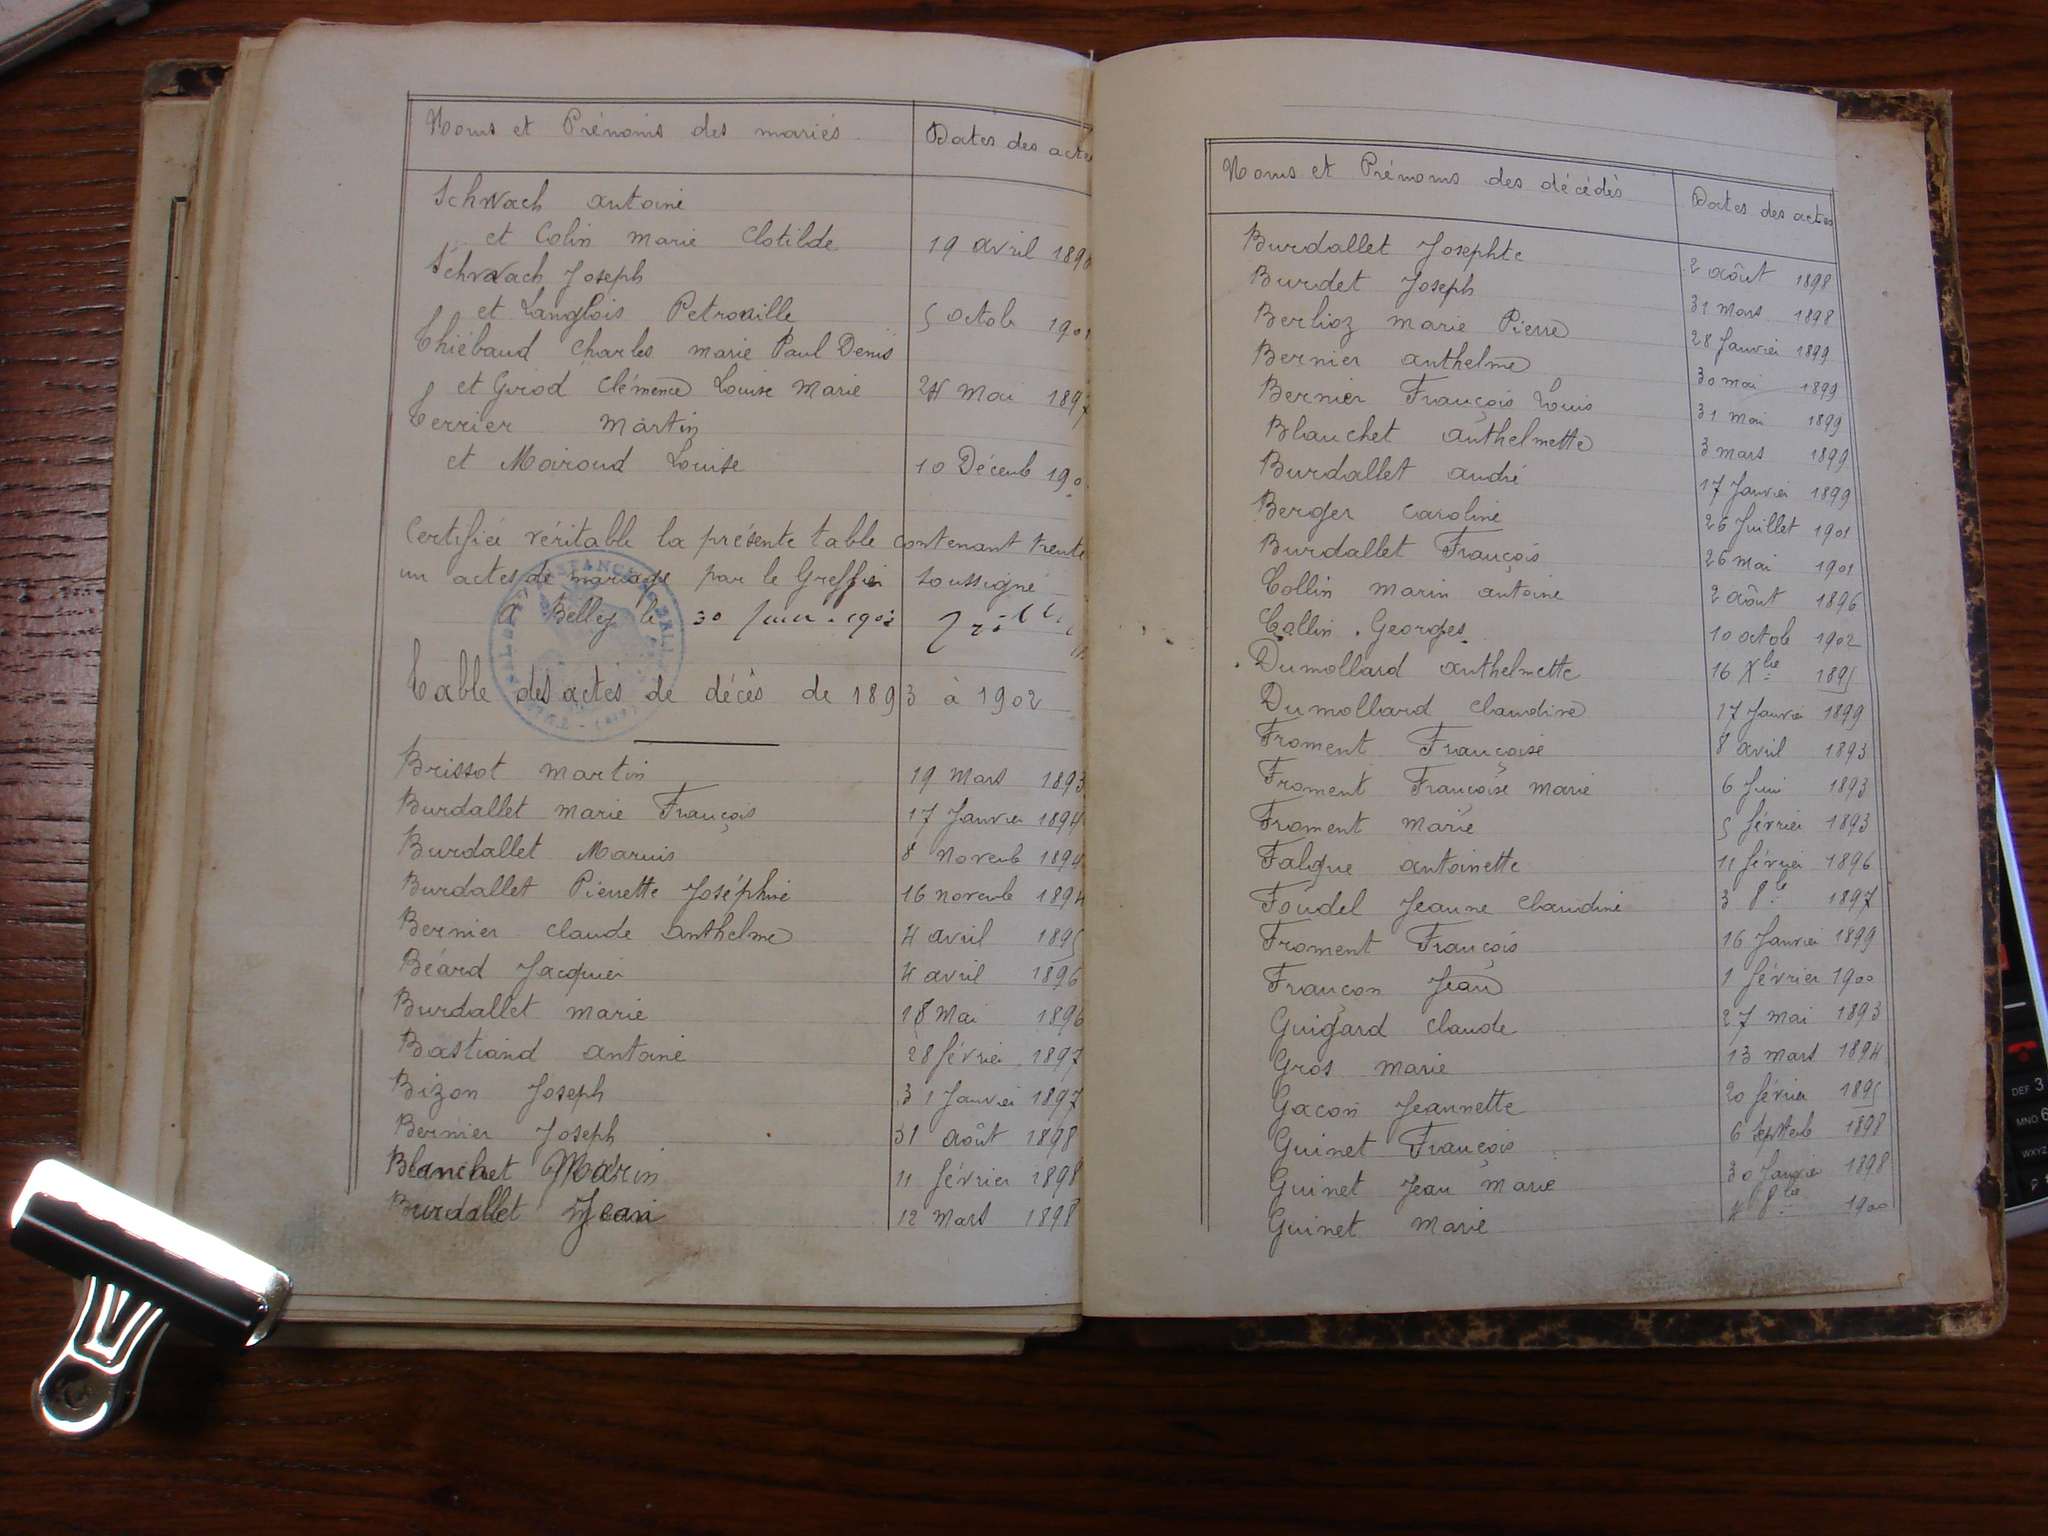 Noms et Prénoms des mariés Dates des actes
Schwach antoine
et Colin marie Clotilde 19 avril 189
Schwach Joseph
et Langlois Petronille 5 octob 190
Thiébaud Charles marie Paul Denis
et Girod Clémence Louise Marie 24 Mai 1897
Terrier Martin
et Mairoud Louise 10 Décemb 190
Certifiée véritable la présente table contenant trente
un actes de mariage par le Greffier soussigné
à Belley le 30 1903
Table des actes de décès de 1893 à 1902
Brissot martin 19 Mars 1893
Burdallet marie François 17 Janvier 1894
Burdallet Marius 8 novemb 1894
Burdallet Pierrette Joséphine 16 novemb 1894
Bernier claude anthelme 4 avril 1895
Béard Jacques 4 avril 1896
Burdallet marie 18 Mai 1896
Bastiand antoine 28 février 1897
Bizon Joseph 31 Janvier 1897
Bernier Joseph 31 août 1898
Blanchet Marin 11 février 1898
Burdallet Jean 12 Mars 1898
Noms et Prénoms des décédés Dates des actes
Burdallet Josephte 2 août 1898
Burdet Joseph 31 mars 1898
Berlioz marie Pierre 28 Janvier 1899
Bernier anthelme 30 mai 1899
Bernier François Louis 31 mai 1899
Blanchet anthelmette 3 mars 1899
Burdallet andré 17 Janvier 1899
Berger caroline 26 Juillet 1901
Burdallet François 26 mai 1901
Collin marin antoine 2 août 1896
Collin Georges 10 octob 1902
Dumollard anthelmette 16 Xbre 1895
Dumollard claudine 17 Janvier 1899
Froment Françoise 8 avril 1893
Froment Françoise marie 6 Juin 1893
Froment marie 5 février 1893
Falque antoinette 11 février 1896
Foudel Jeanne claudine 3 8bre 1897
Froment François 16 Janvier 1899
Françon Jean 1 février 1900
Guigard claude 27 mai 1893
Gros marie 13 mars 1894
Gacon Jeannette 20 février 1895
Guinet François 6 septemb 1898
Guinet Jean marie 30 Janvier 1898
Guinet marie 4 8bre 1900
DEF 3
MNO 6
WXYZ